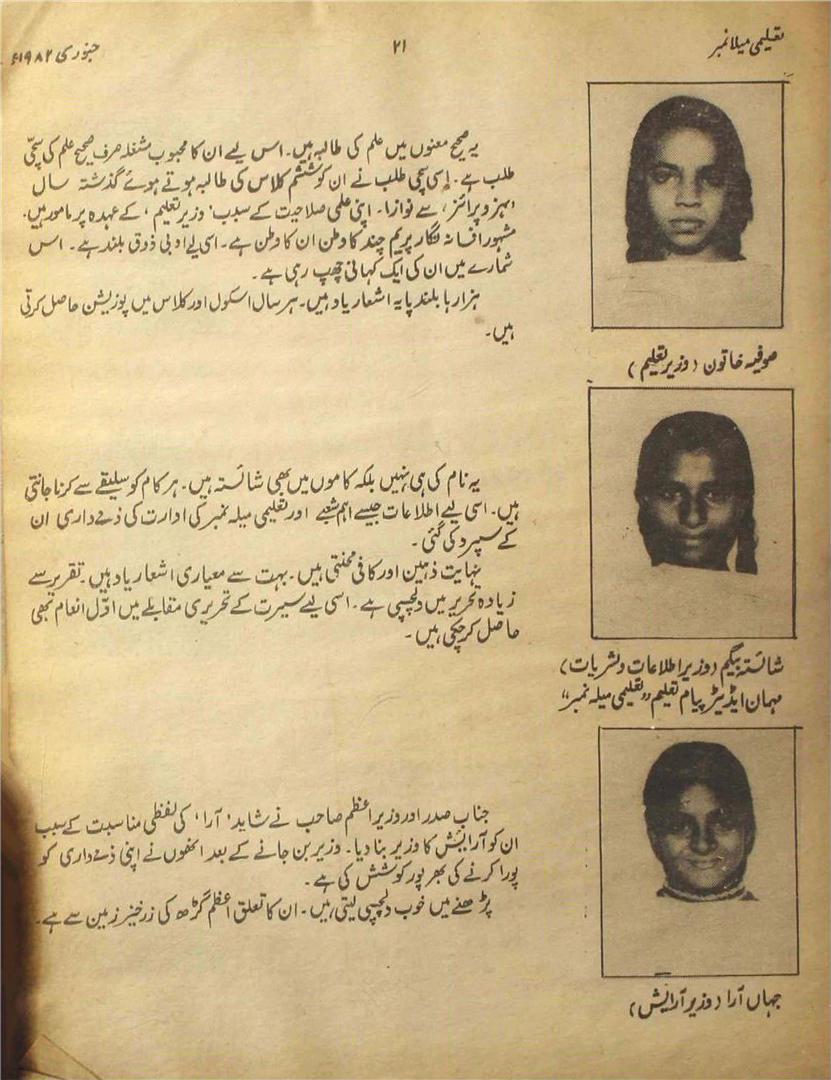 تعلیمی میلا نمبر
۲۱
جنوری ۱۹۸۲ء
یہ صحیح معنوں میں علم کی طالبہ ہیں۔ اس لیے ان کا محبوب مشغلہ صرف صحیح علم کی سچّی
طلب ہے۔ اِسی سچی طلب نے ان کو ششم کلاس کی طالبہ ہوتے ہوئے گذشتہ سال
'بہزو پرائز' سے نوازا۔ اپنی علمی صلاحیت کے سبب 'وزیرِ تعلیم' کے عہدہ پر مامور ہیں۔
مشہور افسانہ نگار پریم چند کا وطن ان کا وطن ہے۔ اسی لیے ادبی ذوق بلند ہے۔ اس
شمارے میں ان کی ایک کہانی چھپ رہی ہے۔
ہزارہا بلند پایہ اشعار یاد ہیں۔ ہر سال اسکول اور کلاس میں پوزیشن حاصل کرتی
ہیں۔
صوفیہ خاتون (وزیر تعلیم)
یہ نام کی ہی نہیں بلکہ کاموں میں بھی شائستہ ہیں۔ ہر کام کو سلیقے سے کرنا جانتی
ہیں۔ اسی لیے اطلاعات جیسے اہم شعبے اور تعلیمی میلہ نمبر کی ادارت کی ذمے داری ان
کے سپرد کی گئی۔
نہایت ذہین اور کافی محنتی ہیں۔ بہت سے معیاری اشعار یاد ہیں۔ تقریر سے
زیادہ تحریر میں دلچسپی ہے۔ اسی لیے سیرت کے تحریری مقابلے میں اوّل انعام بھی
حاصل کرچکی ہیں۔
شائستہ بیگم (وزیر اطلاعات و نشریات)
مہمان ایڈیٹر پیام تعلیم "تعلیمی میلہ نمبر"
جناب صدر اور وزیر اعظم صاحب نے شاید 'آرا' کی لفظی مناسبت کے سبب
ان کو آرائش کا وزیر بنا دیا۔ وزیر بن جانے کے بعد انھوں نے اپنی ذمے داری کو
پورا کرنے کی بھرپور کوشش کی ہے۔
پڑھنے میں خوب دلچسپی لیتی ہیں۔ ان کا تعلق اعظم گڑھ کی زرخیز زمین سے ہے۔
جہاں آرا (وزیر آرایش)